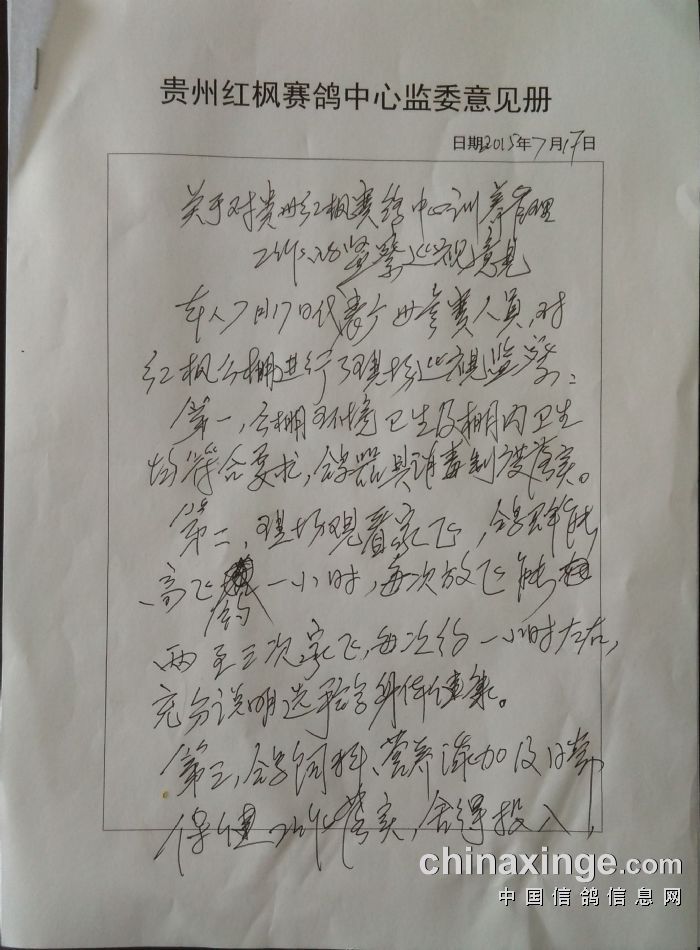 贵州红枫赛鸽中心监委意见册
日期2015年7月17日
关于对贵州红枫赛鸽中心训养管理
工作的监察巡视意见
本人7月17日代表广西参赛人员,对
红枫公棚进行了现场巡视监察:
第一,公棚环境卫生及棚内卫生
均符合要求,鸽器具消毒制度落实。
第二,现场观看家飞,鸽群能
高飞约一小时,每次放飞能
两至三次家飞,每次约一小时左右,
充分说明选手鸽身体健康。
第三,鸽饲料、营养添加及日常
保健工作落实,舍得投入,
chinaxinge.com
中国信鸽信息网